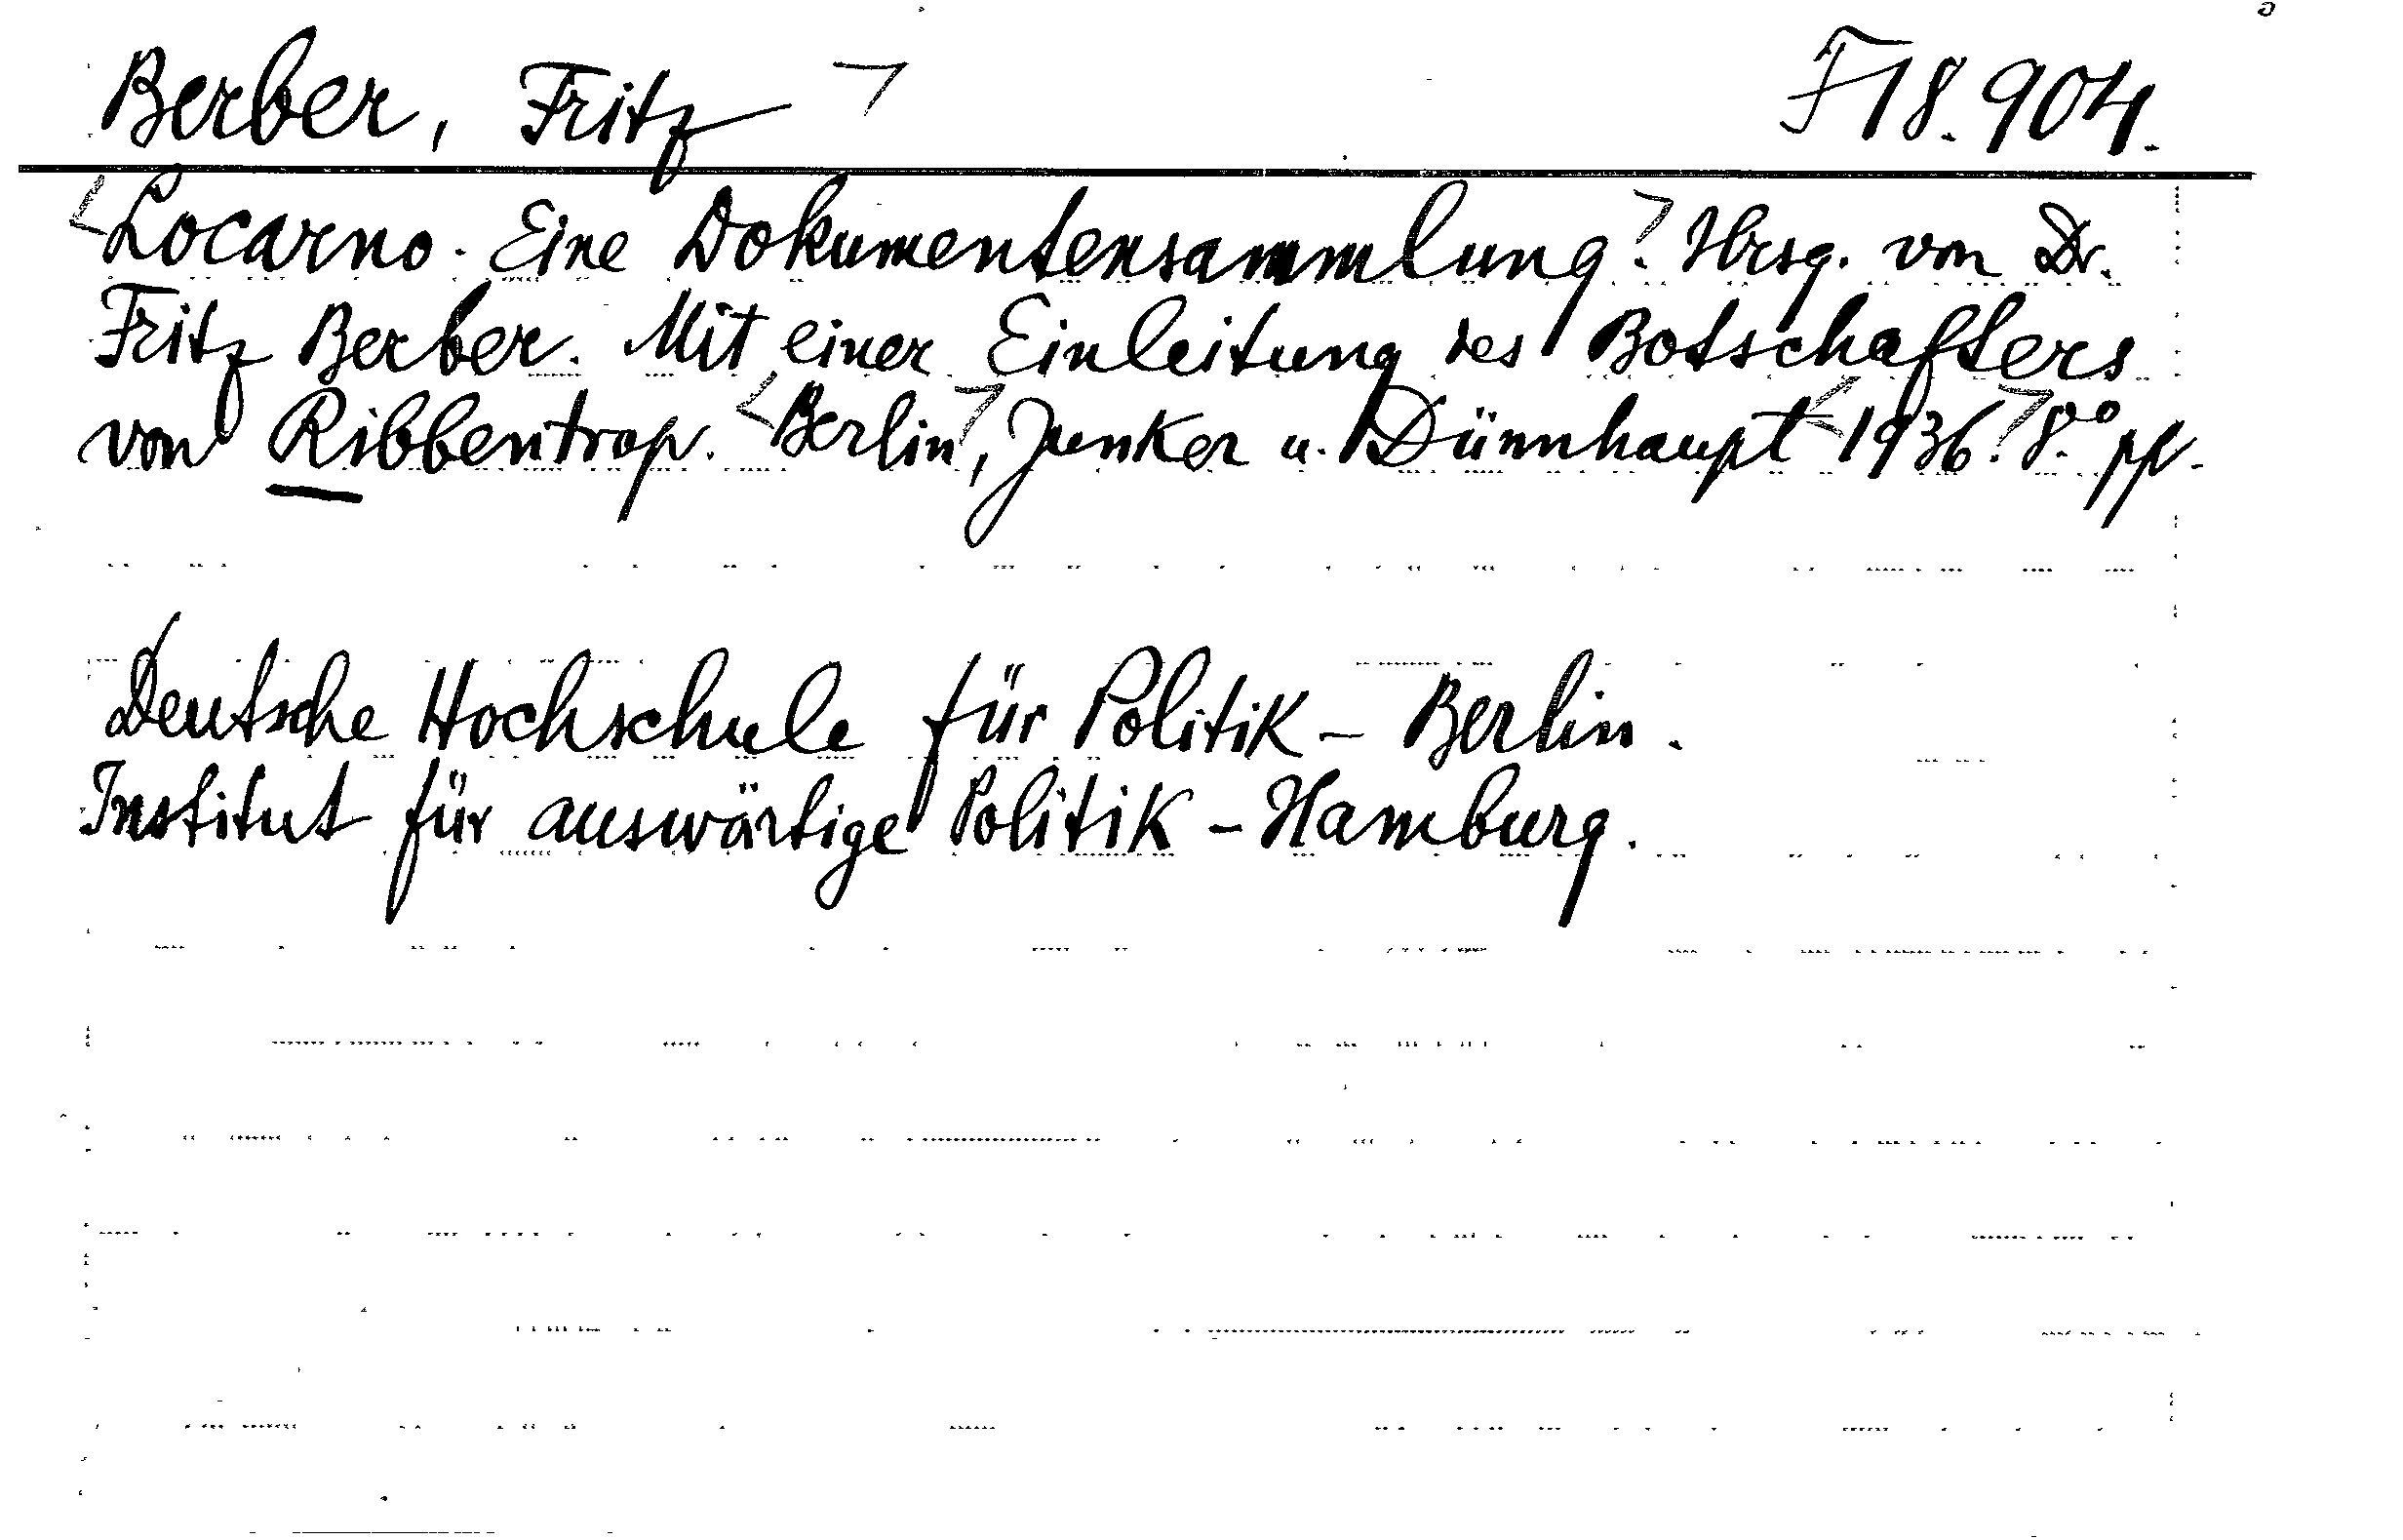 Berber, Fritz F 18.904.
Locarno. Eine Dokumentensammlung. Hrsg. von Dr.
Fritz Berber. Mit einer Einleitung des Botschafters
von Ribbentrop. Berlin, Junker u. Dünnhaupt 1936. 8.° pp.
Deutsche Hochschule für Politik - Berlin.
Institut für auswärtige Politik - Hamburg.